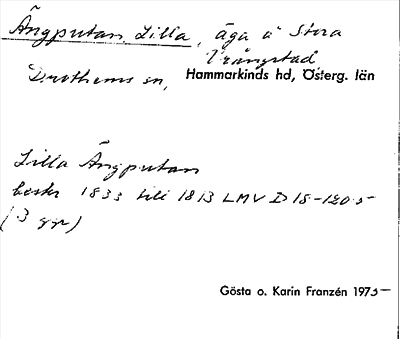 Ängputan, Lilla, äga å Stora
Vrångstad
Drothems sn, Hammarkinds hd, Österg. län
Lilla Ängputan
beskr 1833 till 1813 LMV D 15-120:5
(3 ggr)
Gösta o. Karin Franzén 1975